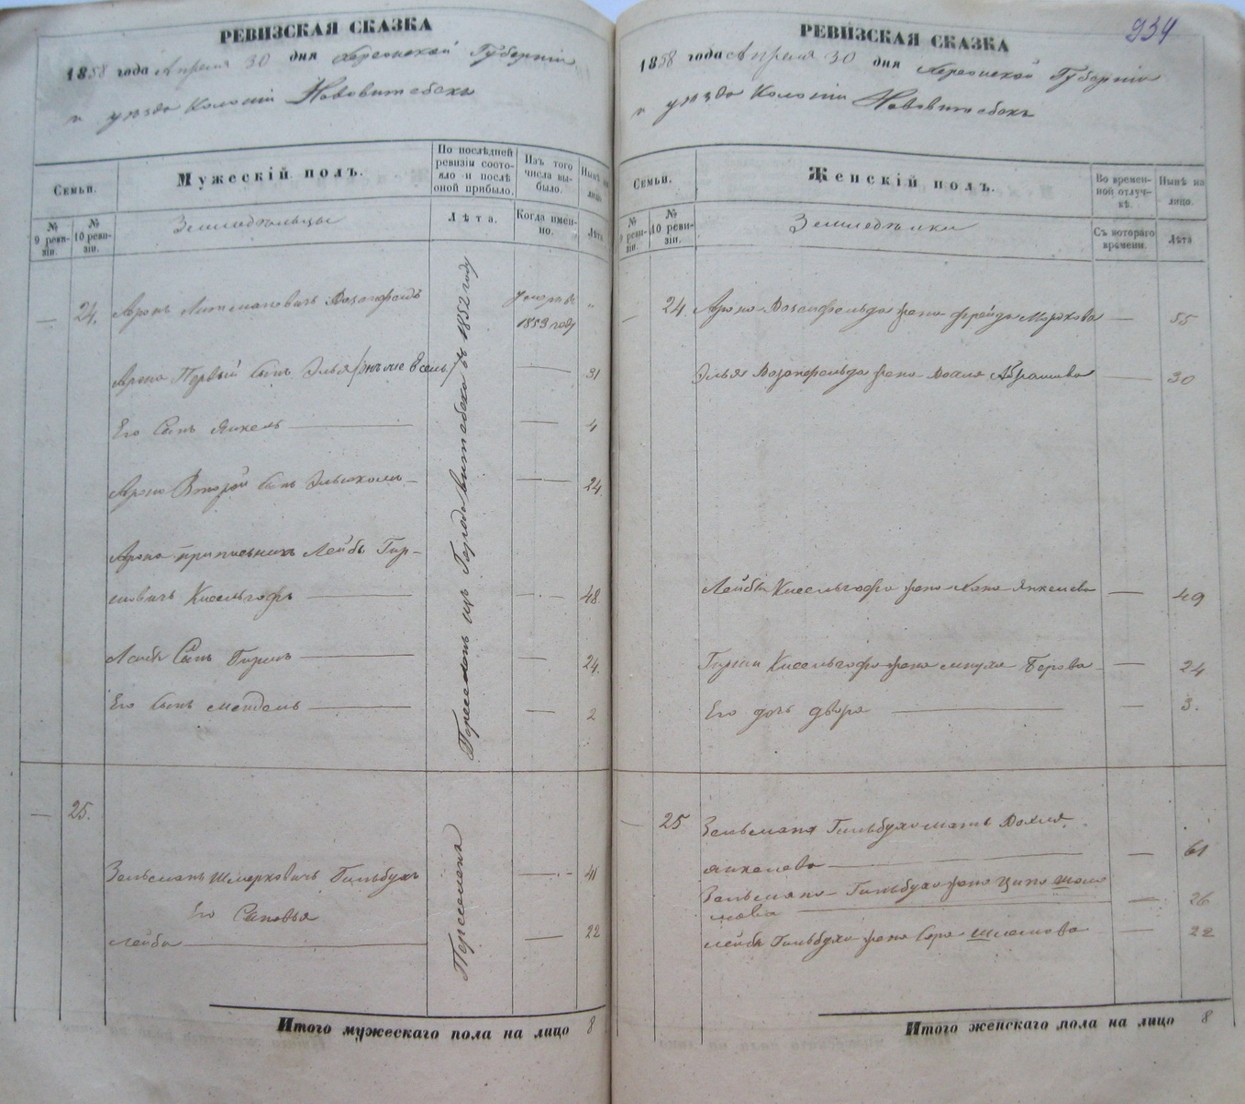 РЕВИЗСКАЯ СКАЗКА
1858 года Апреля 30 дня Херсонской Губерніи
и уезда Колоніи Нововитебскъ
Семьи.
Мужескій полъ.
По послѣдней ревизіи состояло и послѣ оной прибыло.
Изъ того числа выбыло.
Нынѣ на лицо.
№ 9 ревизіи.
№ 10 ревизіи.
Земледѣльцы
Лѣта.
Когда именно.
Лѣта
Переселенъ изъ Города Витебска въ 1852 году
24. Аронъ
1853 году
Арона Первый сынъ Элья 31
Его Сынъ Янкель 4
Арона Второй сынъ 24
Арона приписникъ Лейба Гир-
шовичъ Кисельгофъ 48
Лейбы Сынъ Гиршъ 24
Его сынъ Мендель 2
25.
Переселенъ
Зельманъ Шмерковичъ Гильбухъ 41
Его Сыновья
Лейба 22
Итого мужескаго пола на лицо 8
934
РЕВИЗСКАЯ СКАЗКА
1858 года Апреля 30 дня Херсонской Губерніи
и уезда Колоніи Нововитебскъ
Семьи.
Женскій полъ.
Во временной отлучкѣ.
Нынѣ на лицо.
№ 9 ревизіи.
№ 10 ревизіи.
Земледѣлки
Съ котораго времени.
Лѣта
24. Арона Розенфельда жена Фрейда 55
Элья Розенфельда жена Абрамова 30
Лейбы Кисельгофа жена Хана Янкелева 49
Гирша Кисельгофа жена Берова 24
Его дочь Двера 3.
25 Зельмана Гильбуха мать
Янкелева 61
Зельмана Гильбуха жена Ципа Шоло
мова 26
Лейбы Гильбуха жена Сора Шломова 22
Итого женскаго пола на лицо 8